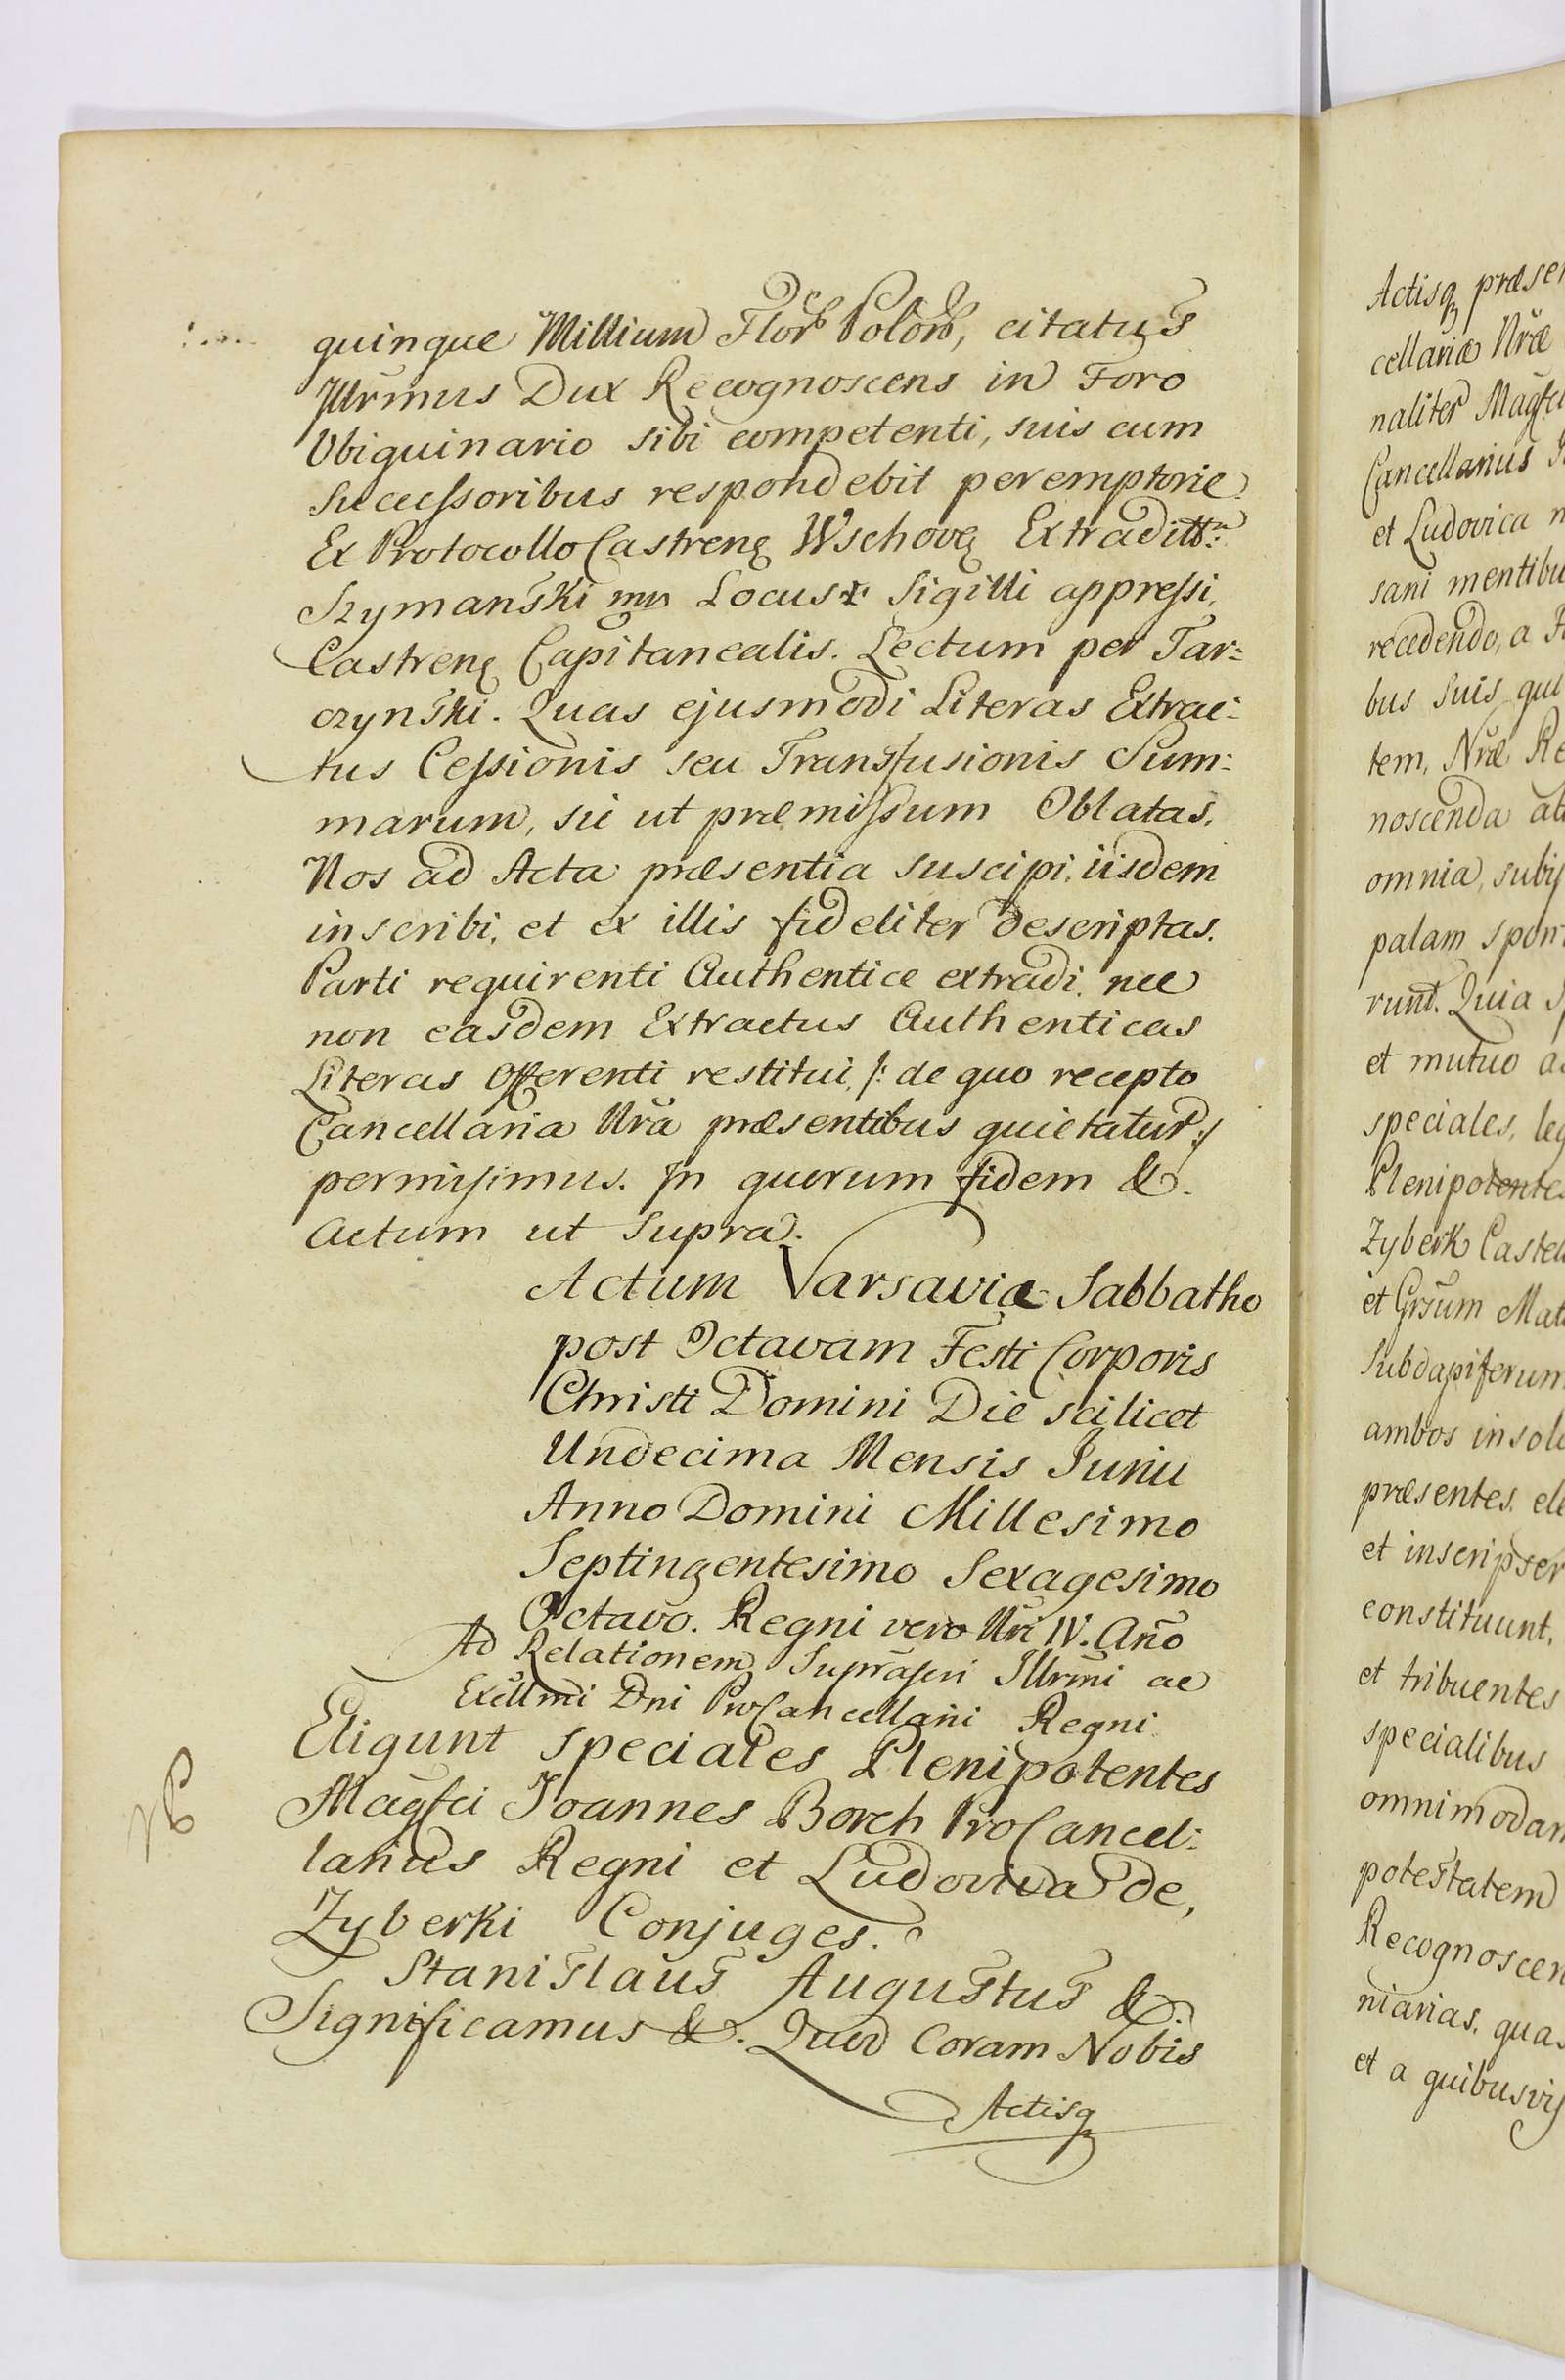 quinque Millium Flor Polon, citatus
Illrmus Dux Recognoscens in Foro
Ubiquinario sibi competenti, suis cum
Successoribus respondebit peremptorie.
Ex Protocollo Castrenę Wschovę Extraditt:
Szymanski mp Locus + Sigilli appressi,
Castrenę Capitanealis. Lectum per Tar:
czynski. Quas ejusmodi Literas Extrac:
tus Cessionis seu Transfusionis Sum:
marum, sic ut præmissum Oblatas,
Nos ad Acta præsentia suscipi, iisdem
inscribi, et ex illis fideliter descriptas,
Parti requirenti Authentice extradi, nec
non easdem Extractus Authenticas
Literas Offerenti restitui, /: de quo recepto
Cancellaria Nrã præsentibus quietatur :/
permisimus. In quorum fidem &.
Actum ut Supra.
Actum Varsaviæ Sabbatho
post Octavam Festi Corporis
Christi Domini Die scilicet
Undecima Mensis Junii
Anno Domini Millesimo
Septingentesimo Sexagesimo
Octavo. Regni vero Nri IV. Año
Ad Relationem Suprascri Illrmi ac
Excllmi Dni ProCancellarii Regni
Eligunt speciales Plenipotentes
Magfci Joannes Borch ProCancel:
larius Regni et Ludovica de,
Zyberki Conjuges.
Stanislaus Augustus &.
Significamus &. Quod Coram Nobis
Actisq
Actisq præsen
cellariæ Nræ
naliter Magfci
Cancellarius
et Ludovica
sani mentibu
recedendo, a
bus suis, qui
tem, Nræ Re
noscenda
omnia, subij
palam, spon
runt. Quia
et mutuo
speciales, leg
Plenipotentes
Zyberk Castel
et Grsum Mat
Subdapiferum
ambos in soli
præsentes, ele
et inscripser
constituunt,
et tribuentes
specialibus
omnimodam
potestatem
Recognoscen
niarias, quas
et a quibusvis